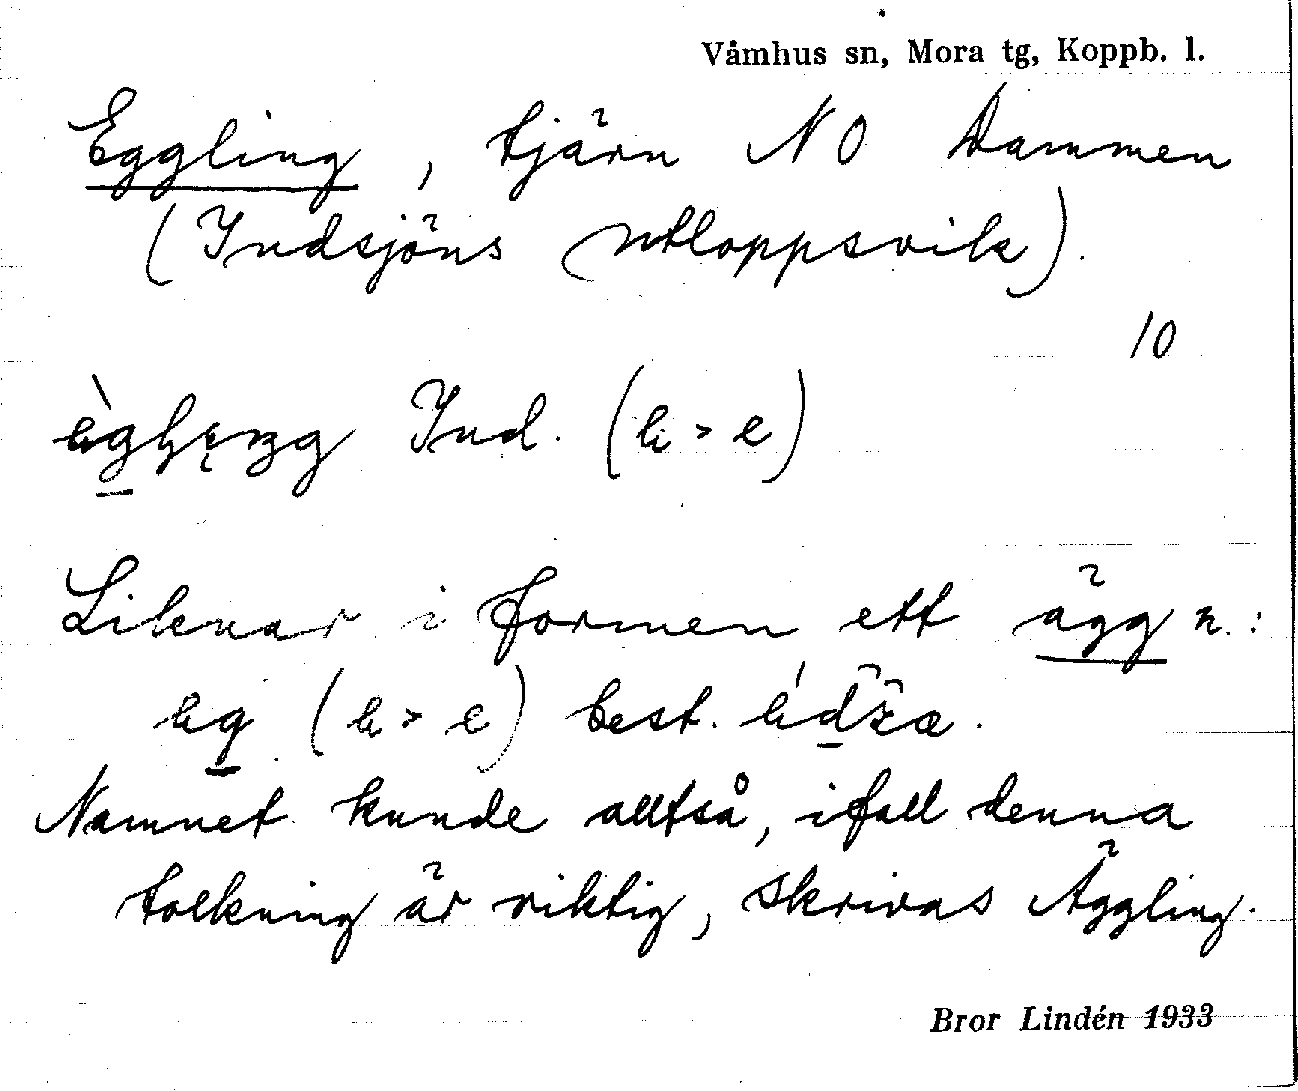 Våmhus sn, Mora tg, Koppb. l.
Eggling, tjärn NO Dammen
(Indsjöns utloppsvik).
10
Ind. ( > e)
Liknar i formen ett ägg n.:
( > e) best.
Namnet kunde alltså, ifall denna
tolkning är riktig, skrivas Äggling.
Bror Lindén 1933